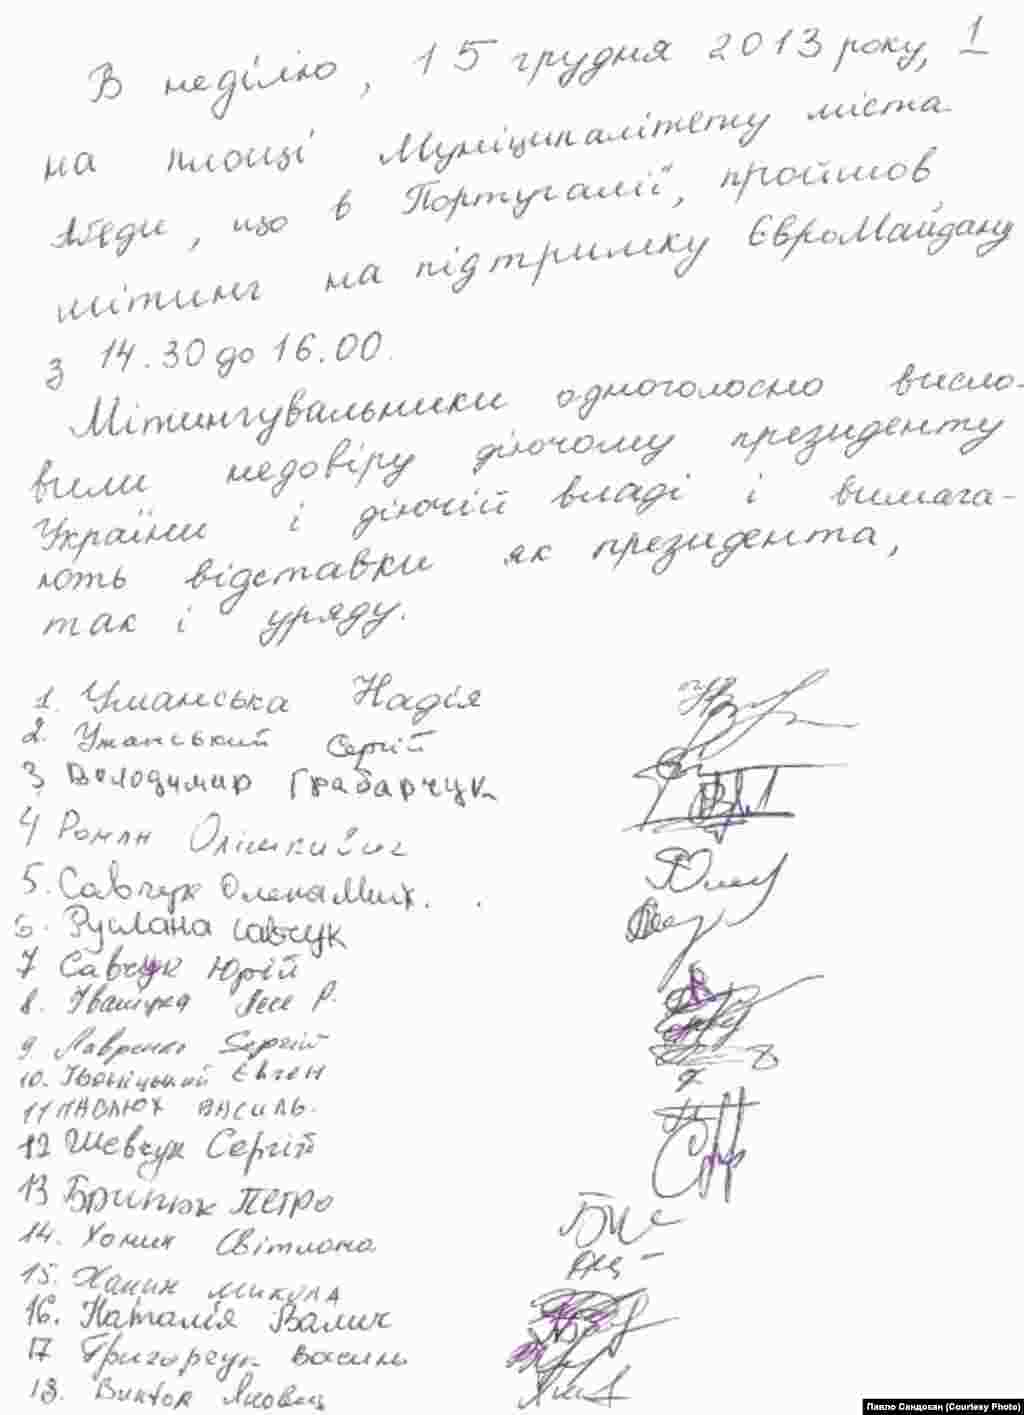 В неділю, 15 грудня 2013 року, 1
на площі Муніципалітету міста
що в Португалії, пройшов
мітинг на підтримку ЄвроМайдану
з 14.30 до 16.00.
Мітингувальники одноголосно висло-
вили недовіру діючому президенту
України і діючій владі і вимага-
ють відставки як президента,
так і уряду.
1. Уманська Надія
2. Уманський Сергій
3 Володимир Грабарчук
4 Роман
5. Савчук Олена Мих.
6. Руслана Савчук
7 Савчук Юрій
8. Р.
9 Сергій
10. Євген
11 Павлюх Василь.
12 Шевчук Сергій
13 Петро
14. Хомик Світлана
15. Микола
16. Наталія
17 Григорчук Василь
18. Виктор
Павло Сандокан (Courtesy Photo)